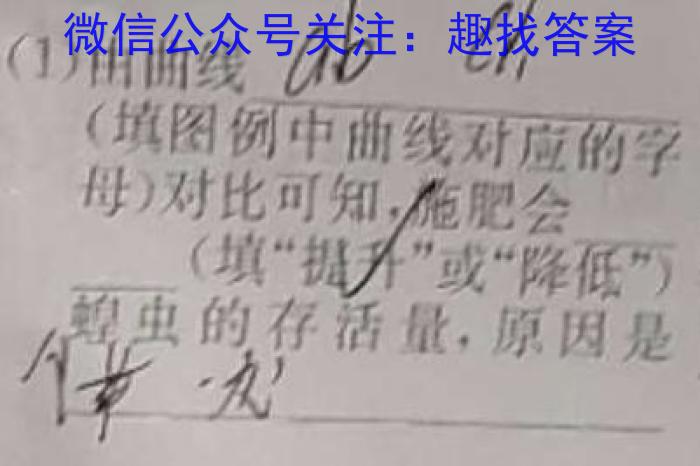 微信公众号关注：趣找答案
(1)由曲线 ab cd
(填图例中曲线对应的字
母)对比可知,施肥会
(填“提升”或“降低”)
蝗虫的存活量,原因是